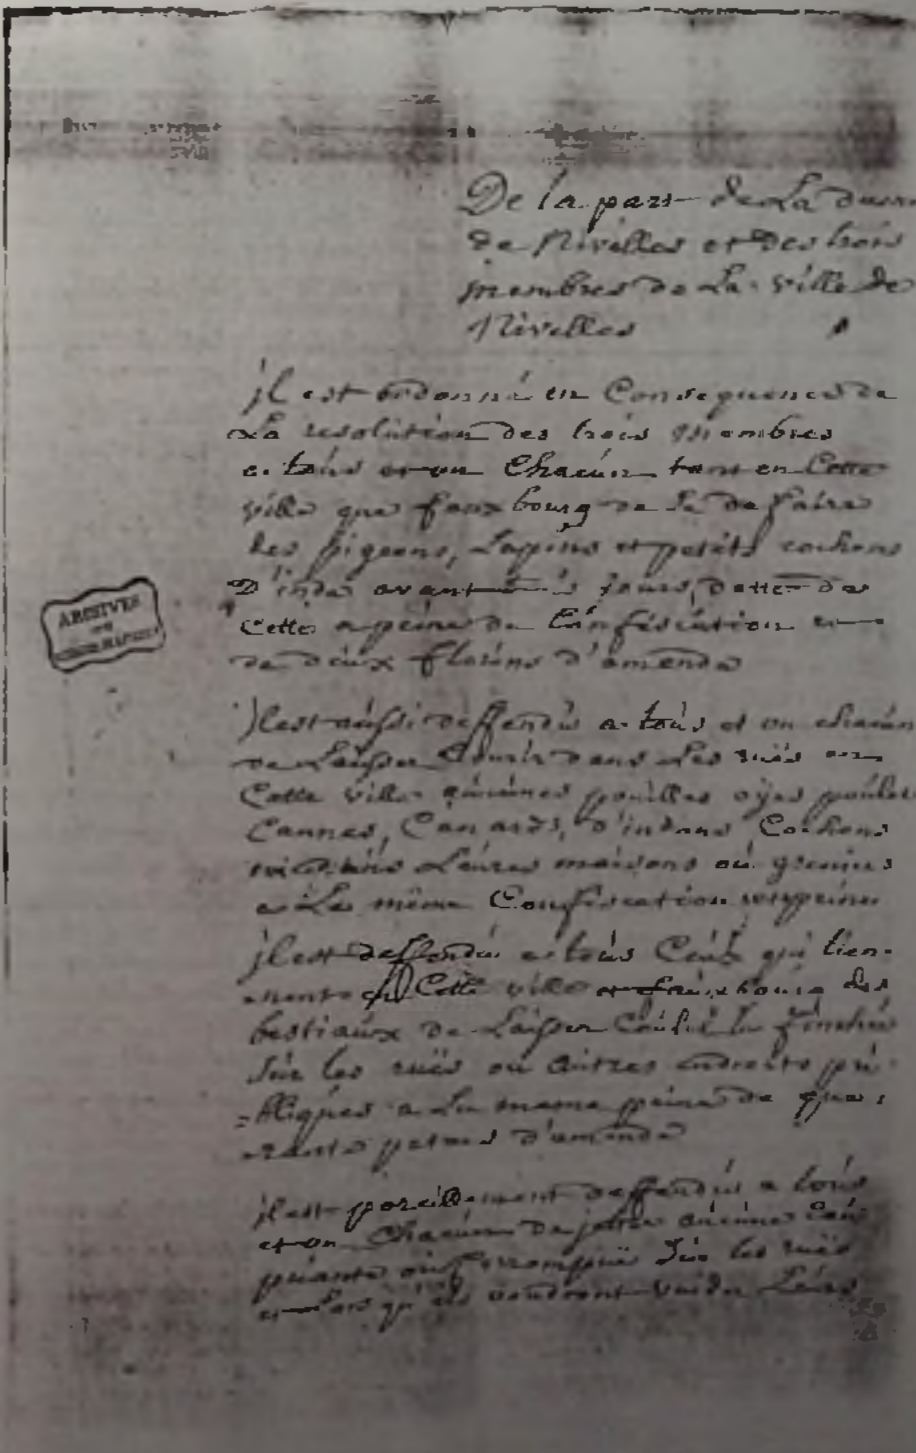 De la part de La dame
de Nivelles et des trois
membres de La ville de
Nivelles
jl est ordonné en Consequence de
La resolution des trois Membres
a tous et un Chacun tant en Cette
ville que fauxbourg de se defaire
des pigeons, Lapins et petits cochons
D'inde avant jours, datte de
Cette a peine de Confiscation et
de deux florins d'amende
jl est aússi deffendú a toús et un chacún
de Laisser Courir dans Les rües en
Cette ville aúcúnes poúilles oÿes poúlets
Cannes, Canards, d'indons Cochons
Leúres maisons oú greniers
a La même Confiscation et peine
jl est deffendú a toús Ceúx qúi tien-
-nent en Cette ville et faúxbourg des
bestiaúx de Laisser Coúler
súr les rúës oú aútres endroits pú-
=bliqúes a La meme peine de qua-
-rante patars d'amende
jl est pareillement deffendú a toús
et un Chacún de jetter aúcúne eaú
púante oú Corrompúë súr les rúës
et Lors qu'ils voúdront vúider Leúrs
ARCHIVES